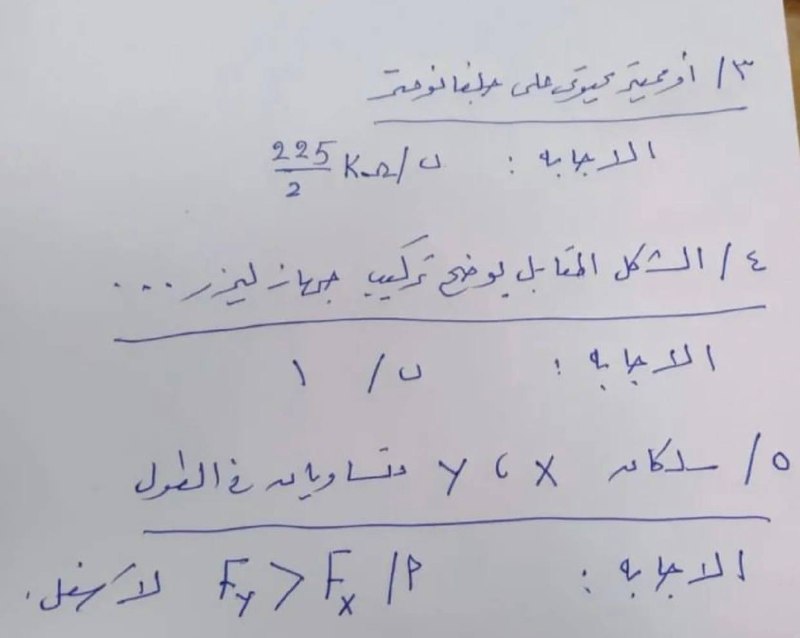 ٣/ أوميتر يحتوي على جلفانومتر
الاجابه : ب/ 225/2 KΩ
٤/ الشكل المقابل يوضح تركيب جهاز ليزر ...
الاجابه : ب/ ١
٥/ سلكان X ، Y متساويان في الطول
الاجابه : أ/ Fy > Fx لأسفل.